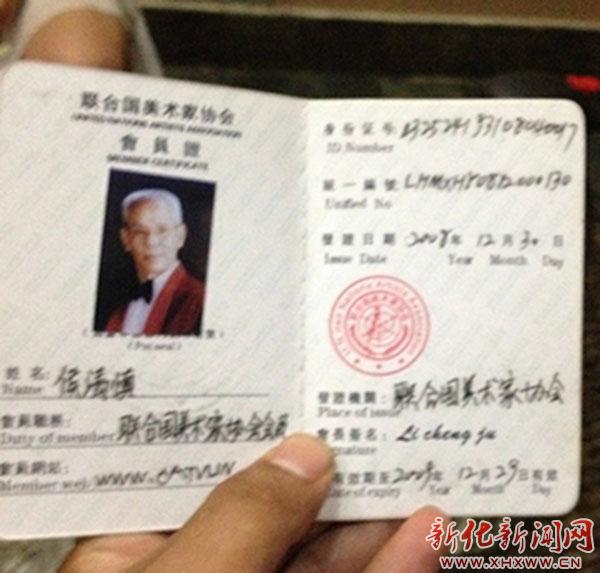 联合国美术家协会
UNITED NATIONS ARTISTS ASSOCIATION
會員證
MEMBER CERTIFICATE
姓名: 侯清慎
Name
會員職務: 联合国美术家协会会员
Duty of member
會員網站:
Member web
身份证号:
ID Number
統一編號: LHMXH80812000130
Unified No
發證日期: 2008年 12月 30日
Issue Date Year Month Day
United Nations Artists Association
發證機關: 联合国美术家协会
Place of issue
會長簽名: Li cheng ju
Signature
有效期至 2009年 12月 29日有效
Date of expiry Year Month Day
新化新闻网
WWW.XHXWW.CN